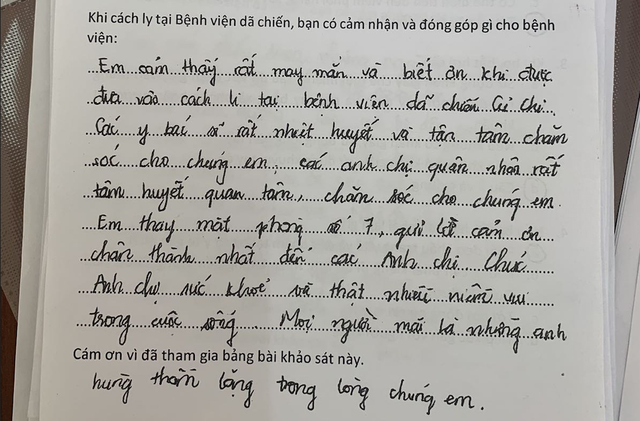 Khi cách ly tại Bệnh viện dã chiến, bạn có cảm nhận và đóng góp gì cho bệnh
viện:
Em cảm thấy rất may mắn và biết ơn khi được
đưa vào cách li tại bệnh viện dã chiến Củ Chi.
Các y bác sĩ rất nhiệt huyết và tận tâm chăm
sóc cho chúng em, các anh chị quân nhân rất
tâm huyết quan tâm, chăm sóc cho chúng em.
Em thay mặt phòng số 7, gửi lời cảm ơn
chân thành nhất đến các Anh chị. Chúc
Anh chị sức khoẻ và thật nhiều niềm vui
trong cuộc sống. Mọi người mãi là những anh
Cám ơn vì đã tham gia bảng bài khảo sát này.
hùng thầm lặng trong lòng chúng em.